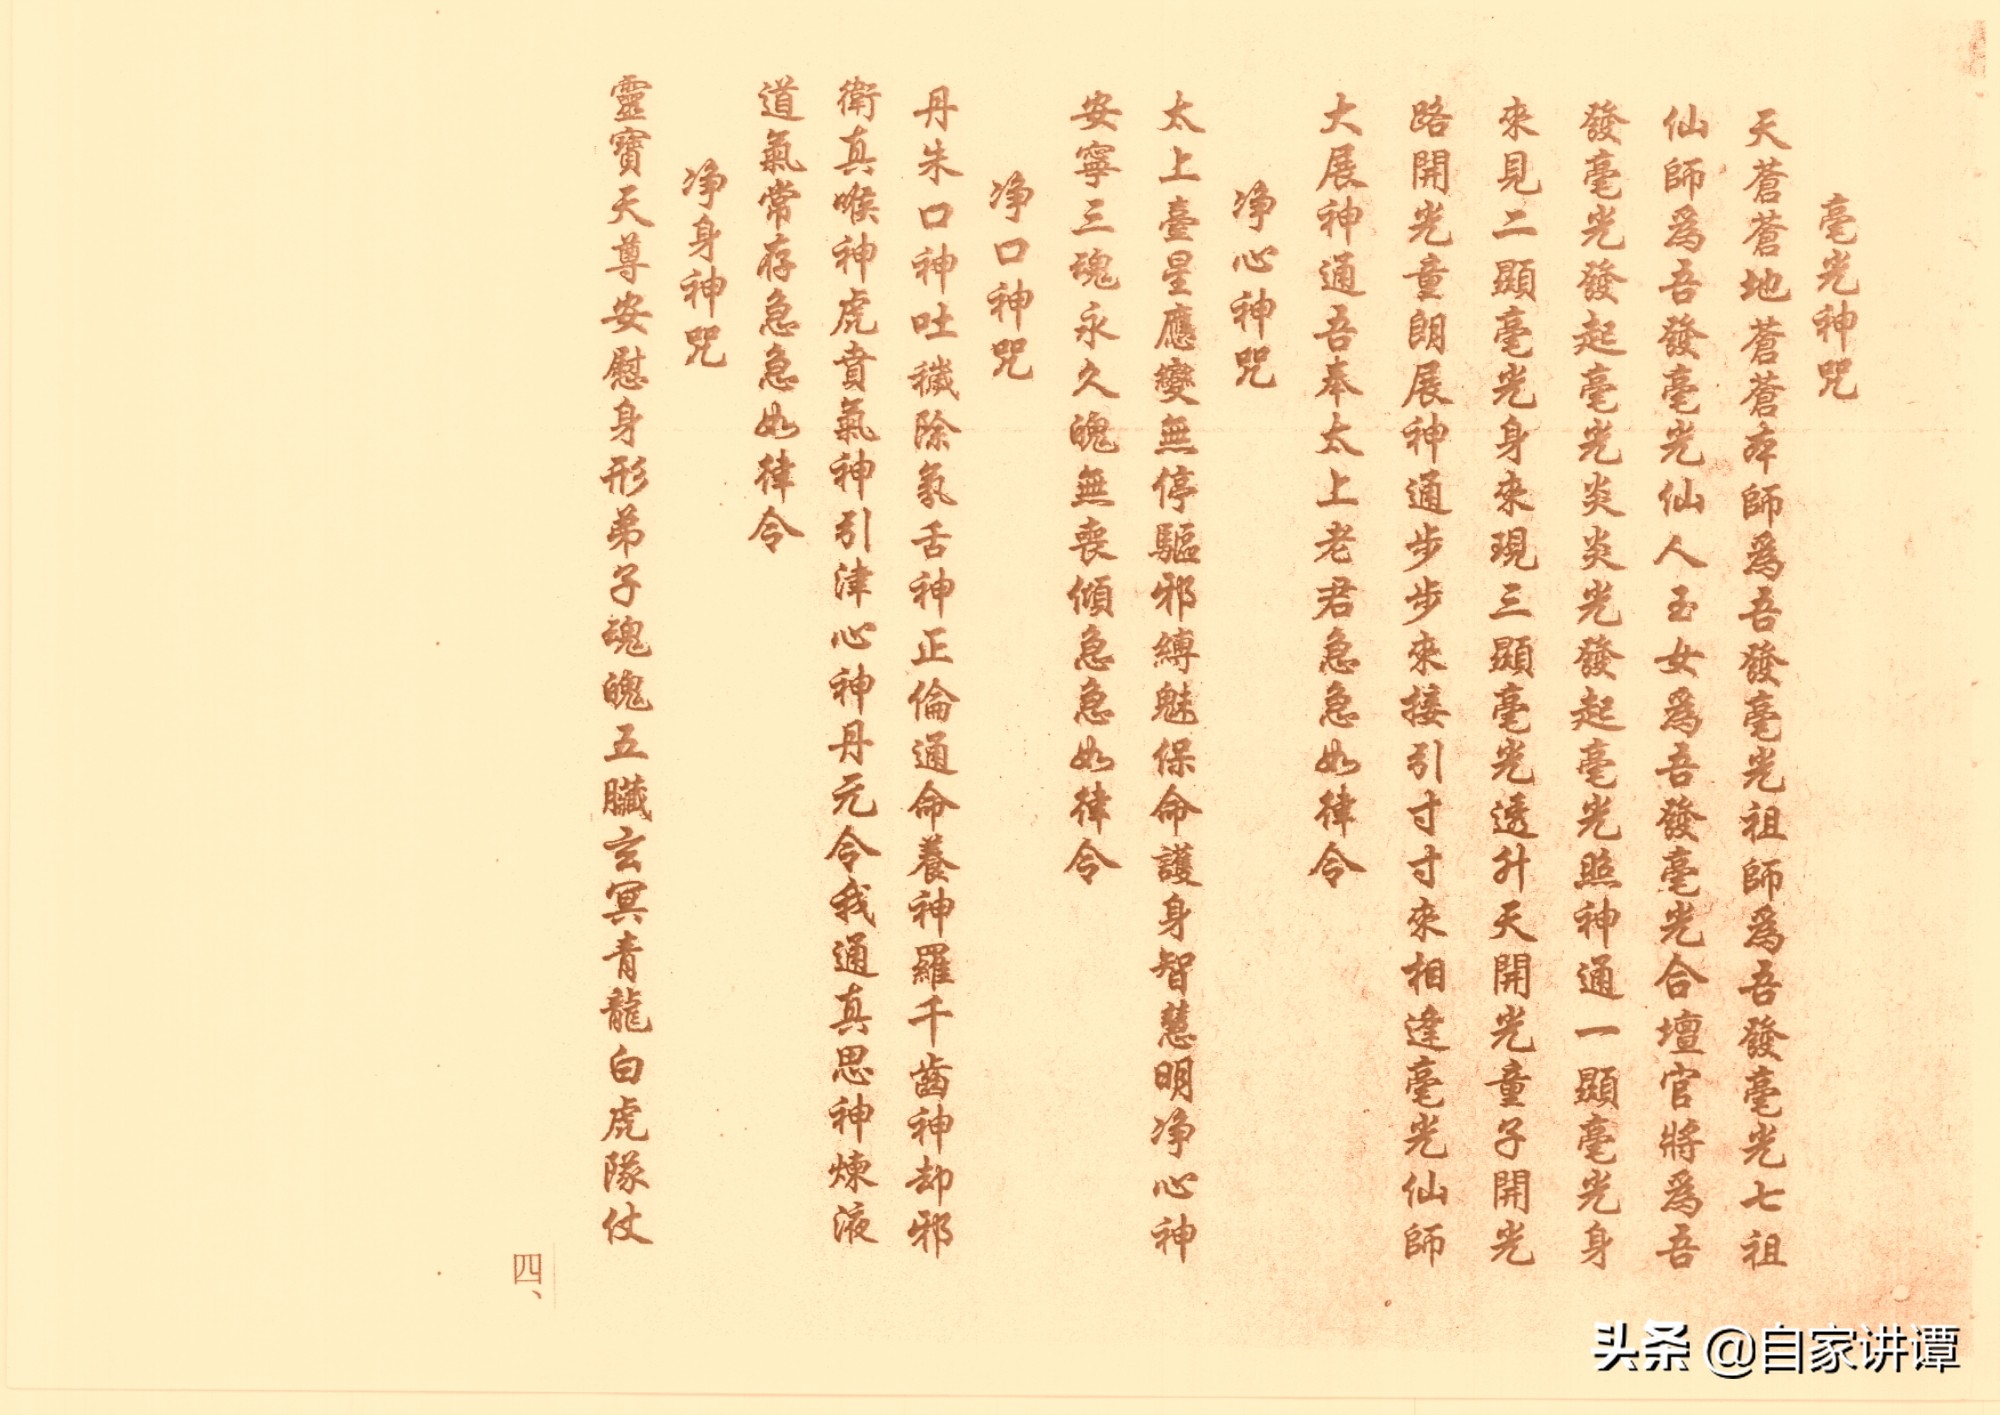 毫光神咒
天蒼蒼地蒼蒼本師爲吾發毫光祖師爲吾發毫光七祖
仙師爲吾發毫光仙人玉女爲吾發毫光合壇官將爲吾
發毫光發起毫光炎炎光發起毫光照神通一顯毫光身
來見二顯毫光身來現三顯毫光透升天開光童子開光
路開光童朗展神通步步來接引寸寸來相逢毫光仙師
大展神通吾奉太上老君急急如律令
净心神咒
太上臺星應變無停驅邪縛魅保命護身智慧明净心神
安寧三魂永久魄無喪傾急急如律令
净口神咒
丹朱口神吐穢除氛舌神正倫通命養神羅千齒神却邪
衛真喉神虎賁氣神引津心神丹元令我通真思神煉液
道氣常存急急如律令
净身神咒
靈寶天尊安慰身形弟子魂魄五臟玄冥青龍白虎隊仗
四、
头条 @自家讲谭